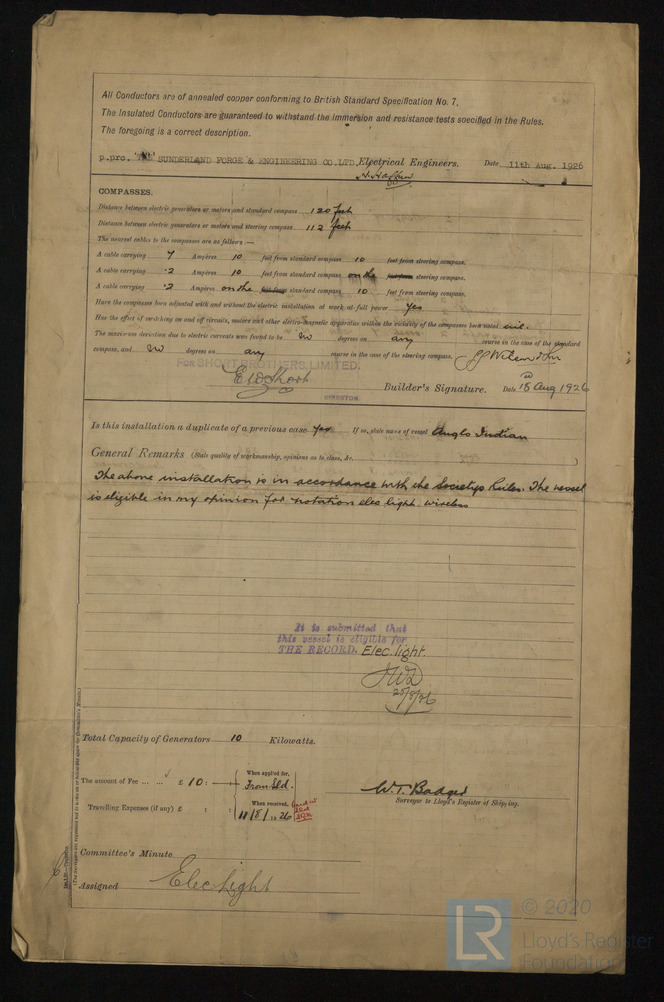 All Conductors are of annealed copper conforming to British Standard Specification No. 7.
The Insulated Conductors are guaranteed to withstand the immersion and resistance tests specified in the Rules.
The foregoing is a correct description.
p.pro. THE SUNDERLAND FORGE & ENGINEERING CO. LTD, Electrical Engineers. Date 11th Aug. 1926
COMPASSES.
Distance between electric generators or motors and standard compass 120 feet
Distance between electric generators or motors and steering compass 112 feet
The nearest cables to the compasses are as follows:—
A cable carrying 7 Ampères 10 feet from standard compass 10 feet from steering compass.
A cable carrying .2 Ampères 10 feet from standard compass on the feet from steering compass.
A cable carrying .2 Ampères on the feet from standard compass 10 feet from steering compass.
Have the compasses been adjusted with and without the electric installation at work at full power yes
Has the effect of switching on and off circuits, motors and other electro-magnetic apparatus within the vicinity of the compasses been noted
The maximum deviation due to electric currents was found to be degrees on any course in the case of the standard
compass, and degrees on any course in the case of the steering compass.
For SHORT BROTHERS, LIMITED.
Builder's Signature. Date 18 Aug 1926
DIRECTOR
Is this installation a duplicate of a previous case yes If so, state name of vessel Anglo Indian
General Remarks (State quality of workmanship, opinions as to class, &c.)
The above installation is in accordance with the Societys Rules. The vessel
is eligible in my opinion for notation elec light. wireless
It is submitted that
this vessel is eligible for
THE RECORD. Elec. light.
25/8/26
Total Capacity of Generators 10 Kilowatts.
The amount of Fee ... ... £ 10 : — When applied for,
Travelling Expenses (if any) £ : : When received,
11/8/1926
W.T. Badger
Surveyor to Lloyd's Register of Shipping.
Committee's Minute
Assigned Elec Light
© 2020
LR Lloyd's Register
Foundation